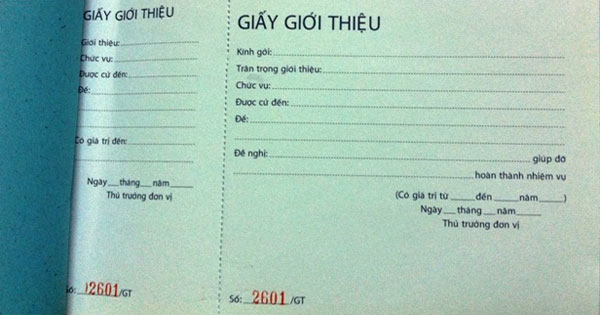 GIẤY GIỚI THIỆU
Giới thiệu:
Chức vụ:
Được cử đến:
Để:
Có giá trị đến:
Ngày___tháng___năm_____
Thủ trưởng đơn vị
Số: 02601/GT
GIẤY GIỚI THIỆU
Kính gởi:
Trân trọng giới thiệu:
Chức vụ:
Được cử đến:
Để:
Đề nghị: giúp đỡ
hoàn thành nhiệm vụ
(Có giá trị từ_____đến_____năm_____)
Ngày___tháng___năm_____
Thủ trưởng đơn vị
Số: 2601/GT